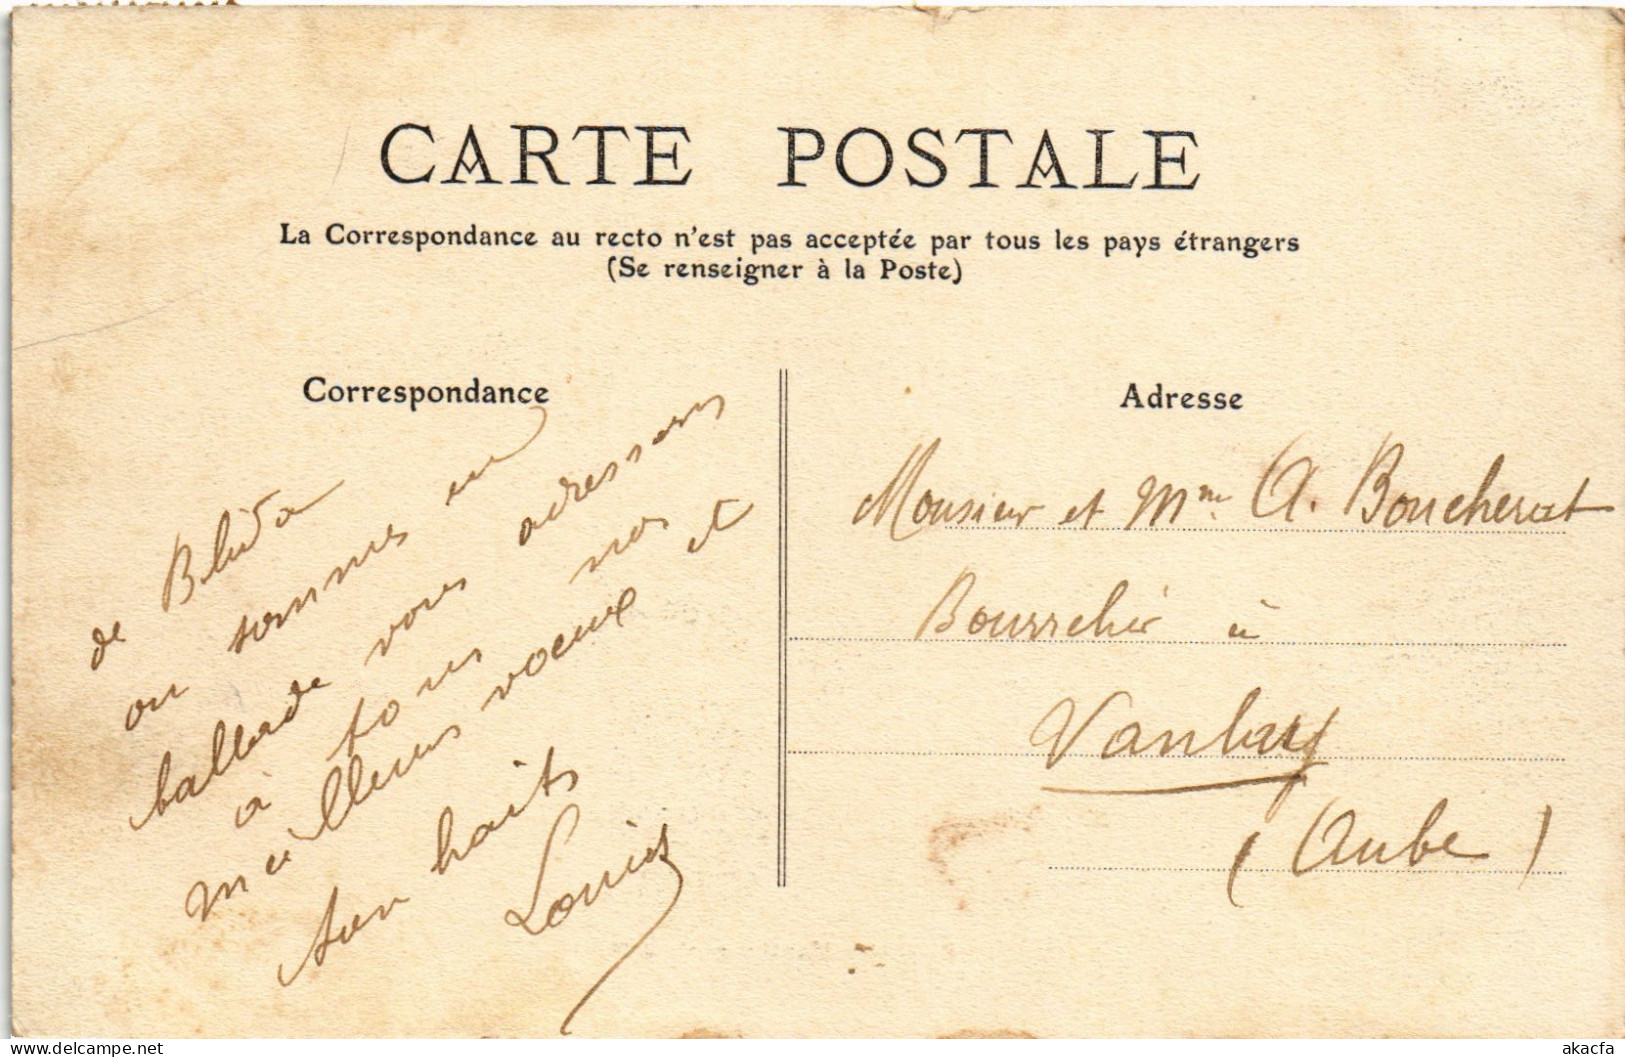 CARTE POSTALE
La Correspondance au recto n'est pas acceptée par tous les pays étrangers
(Se renseigner à la Poste)
Correspondance
de Blida
ou sommes en
ballade vous adressons
à tous nos
meilleurs voeux et
souhaits
Louis
Adresse
Monsieur et Mme A. Boucherat
à
Vanlay
(Aube)
akacfa